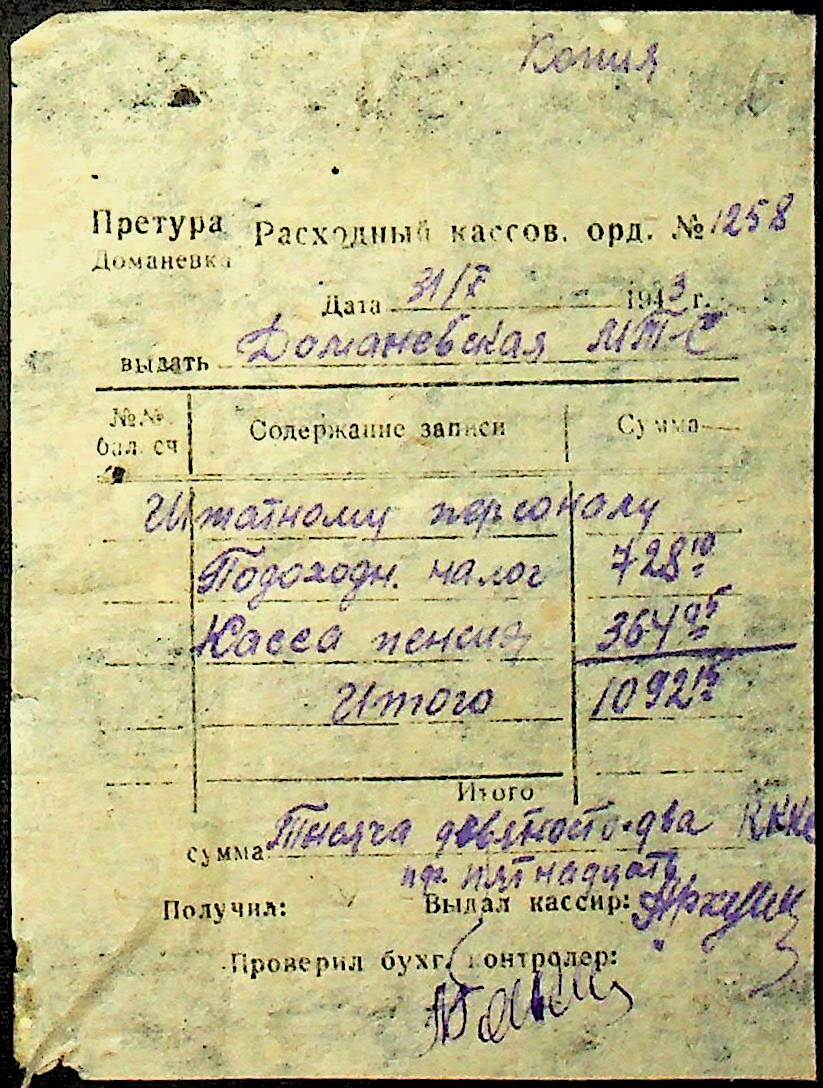 Копия
Претура Расходный кассов. орд. № 1258
Доманевка
Дата 31/X 1943 г.
выдать Доманевская МТС
№№ бал. сч Содержание записи Сумма
Штатному персоналу
Подоходн. налог 728 10
Касса пенсия 364 05
Итого 1092 15
Итого
сумма Тысяча девяносто-два RKKS
пф. пятнадцать
Получил: Выдал кассир:
Проверил бухг. контролер: